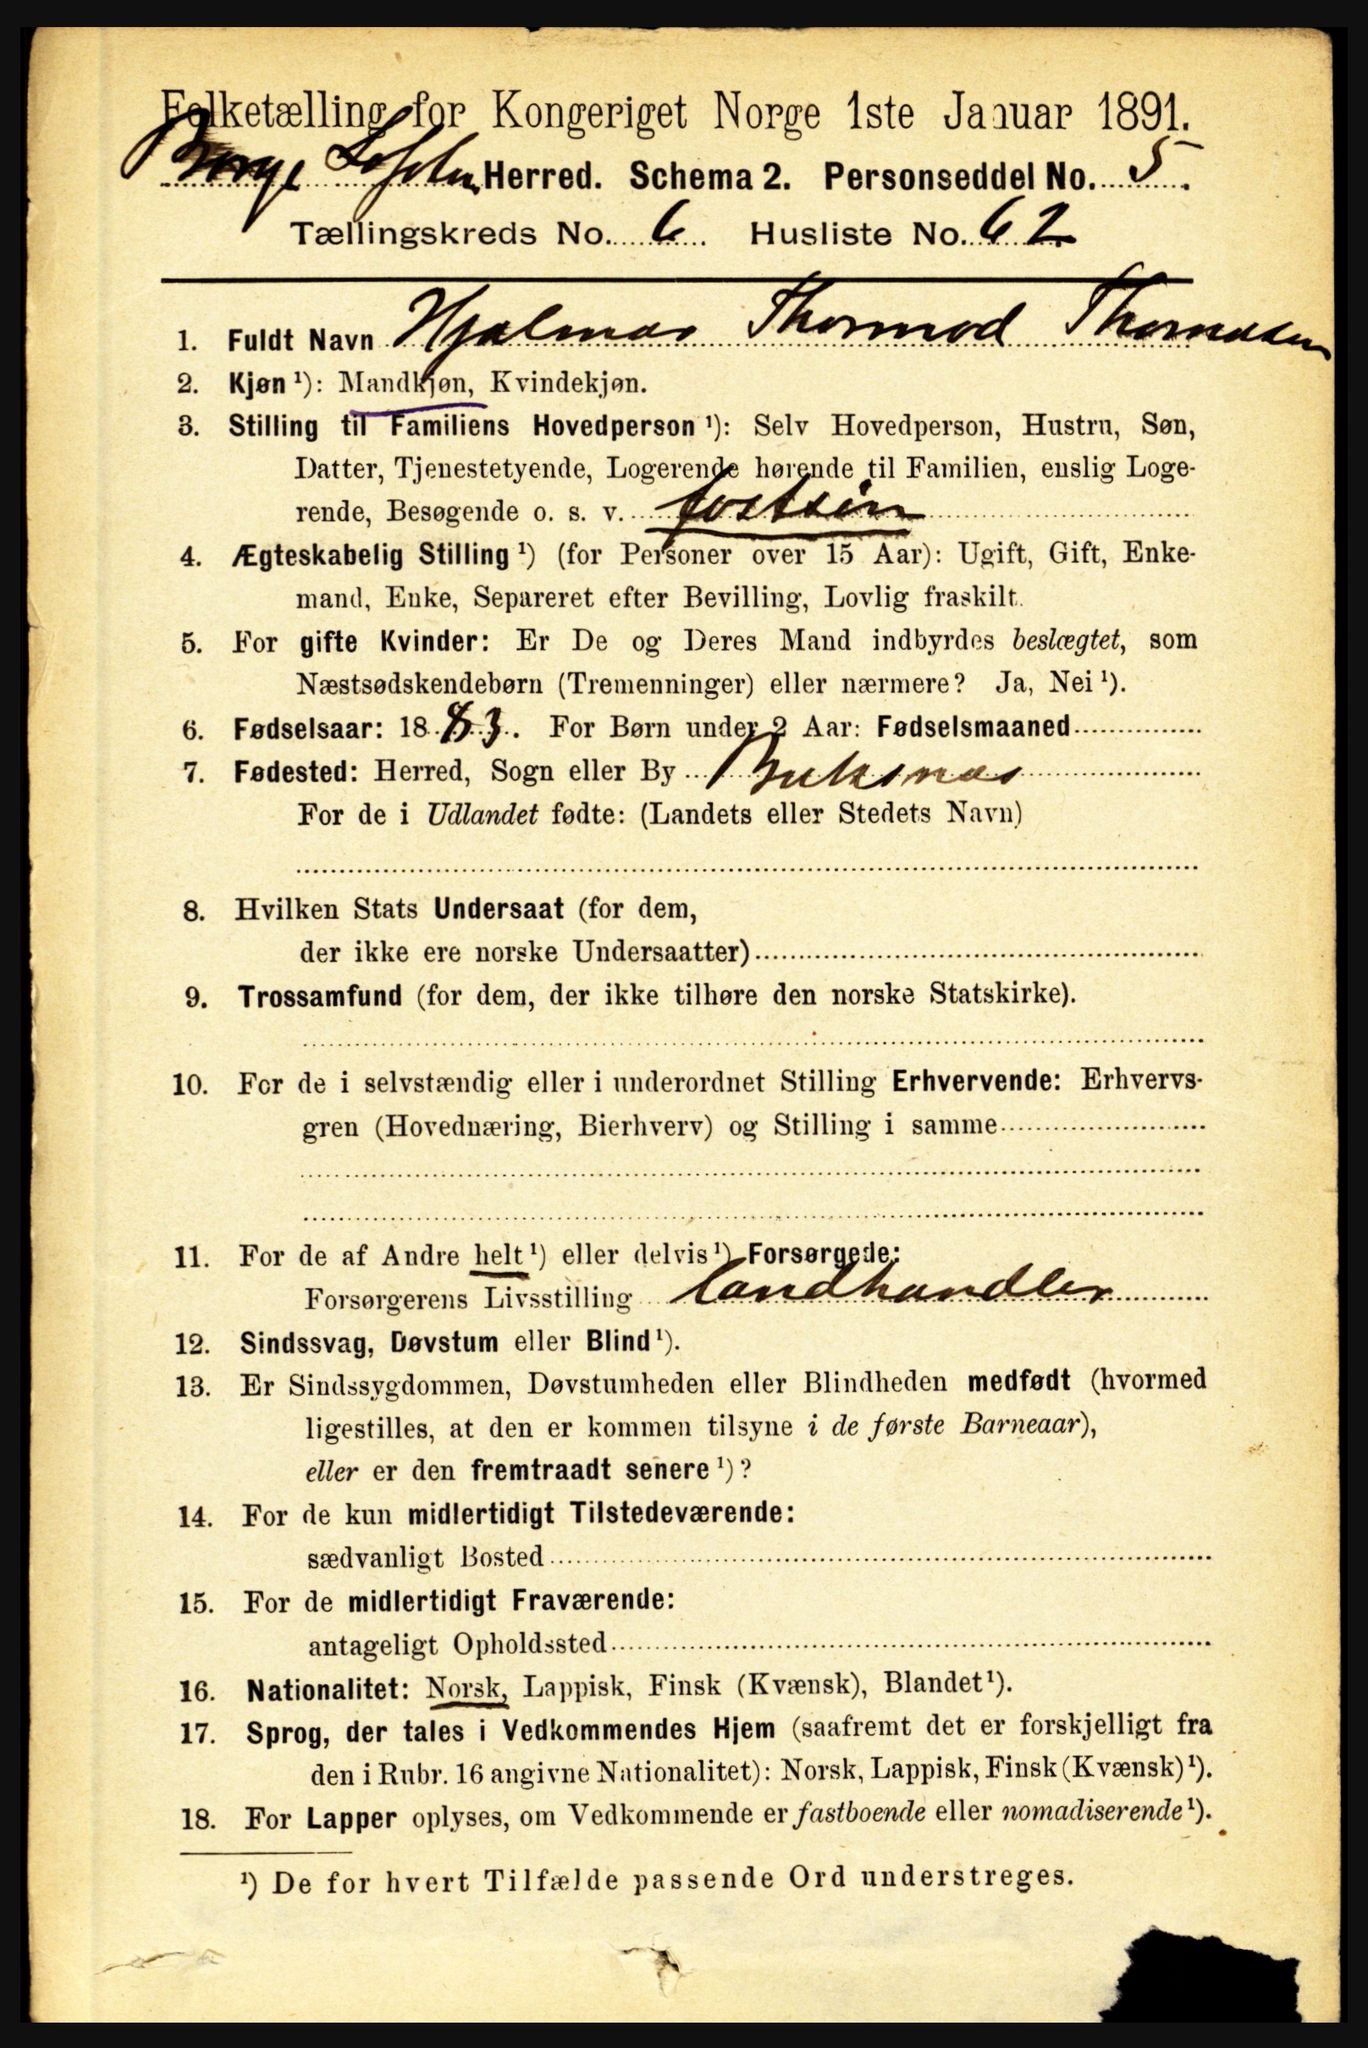 Folketælling for Kongeriget Norge 1ste Januar 1891.
Borge Lofoten Herred. Schema 2. Personseddel No. 5.
Tællingskreds No. 6. Husliste No. 62
1. Fuldt Navn Hjalmar Thormod Thomassen
2. Kjøn ¹): Mandkjøn, Kvindekjøn.
3. Stilling til Familiens Hovedperson ¹): Selv Hovedperson, Hustru, Søn,
Datter, Tjenestetyende, Logerende hørende til Familien, enslig Loge-
rende, Besøgende o. s. v. fostsøn
4. Ægteskabelig Stilling ¹) (for Personer over 15 Aar): Ugift, Gift, Enke-
mand, Enke, Separeret efter Bevilling, Lovlig fraskilt.
5. For gifte Kvinder: Er De og Deres Mand indbyrdes beslægtet, som
Næstsødskendebørn (Tremenninger) eller nærmere? Ja, Nei ¹).
6. Fødselsaar: 1883. For Børn under 2 Aar: Fødselsmaaned
7. Fødested: Herred, Sogn eller By Buksnæs
For de i Udlandet fødte: (Landets eller Stedets Navn)
8. Hvilken Stats Undersaat (for dem,
der ikke ere norske Undersaatter)
9. Trossamfund (for dem, der ikke tilhøre den norske Statskirke).
10. For de i selvstændig eller i underordnet Stilling Erhvervende: Erhvervs-
gren (Hovednæring, Bierhverv) og Stilling i samme
11. For de af Andre helt ¹) eller delvis ¹) Forsørgede:
Forsørgerens Livsstilling landhandler
12. Sindssvag, Døvstum eller Blind ¹).
13. Er Sindssygdommen, Døvstumheden eller Blindheden medfødt (hvormed
ligestilles, at den er kommen tilsyne i de første Barneaar),
eller er den fremtraadt senere ¹)?
14. For de kun midlertidigt Tilstedeværende:
sædvanligt Bosted
15. For de midlertidigt Fraværende:
antageligt Opholdssted
16. Nationalitet: Norsk, Lappisk, Finsk (Kvænsk), Blandet ¹).
17. Sprog, der tales i Vedkommendes Hjem (saafremt det er forskjelligt fra
den i Rubr. 16 angivne Nationalitet): Norsk, Lappisk, Finsk (Kvænsk) ¹).
18. For Lapper oplyses, om Vedkommende er fastboende eller nomadiserende ¹).
¹) De for hvert Tilfælde passende Ord understreges.